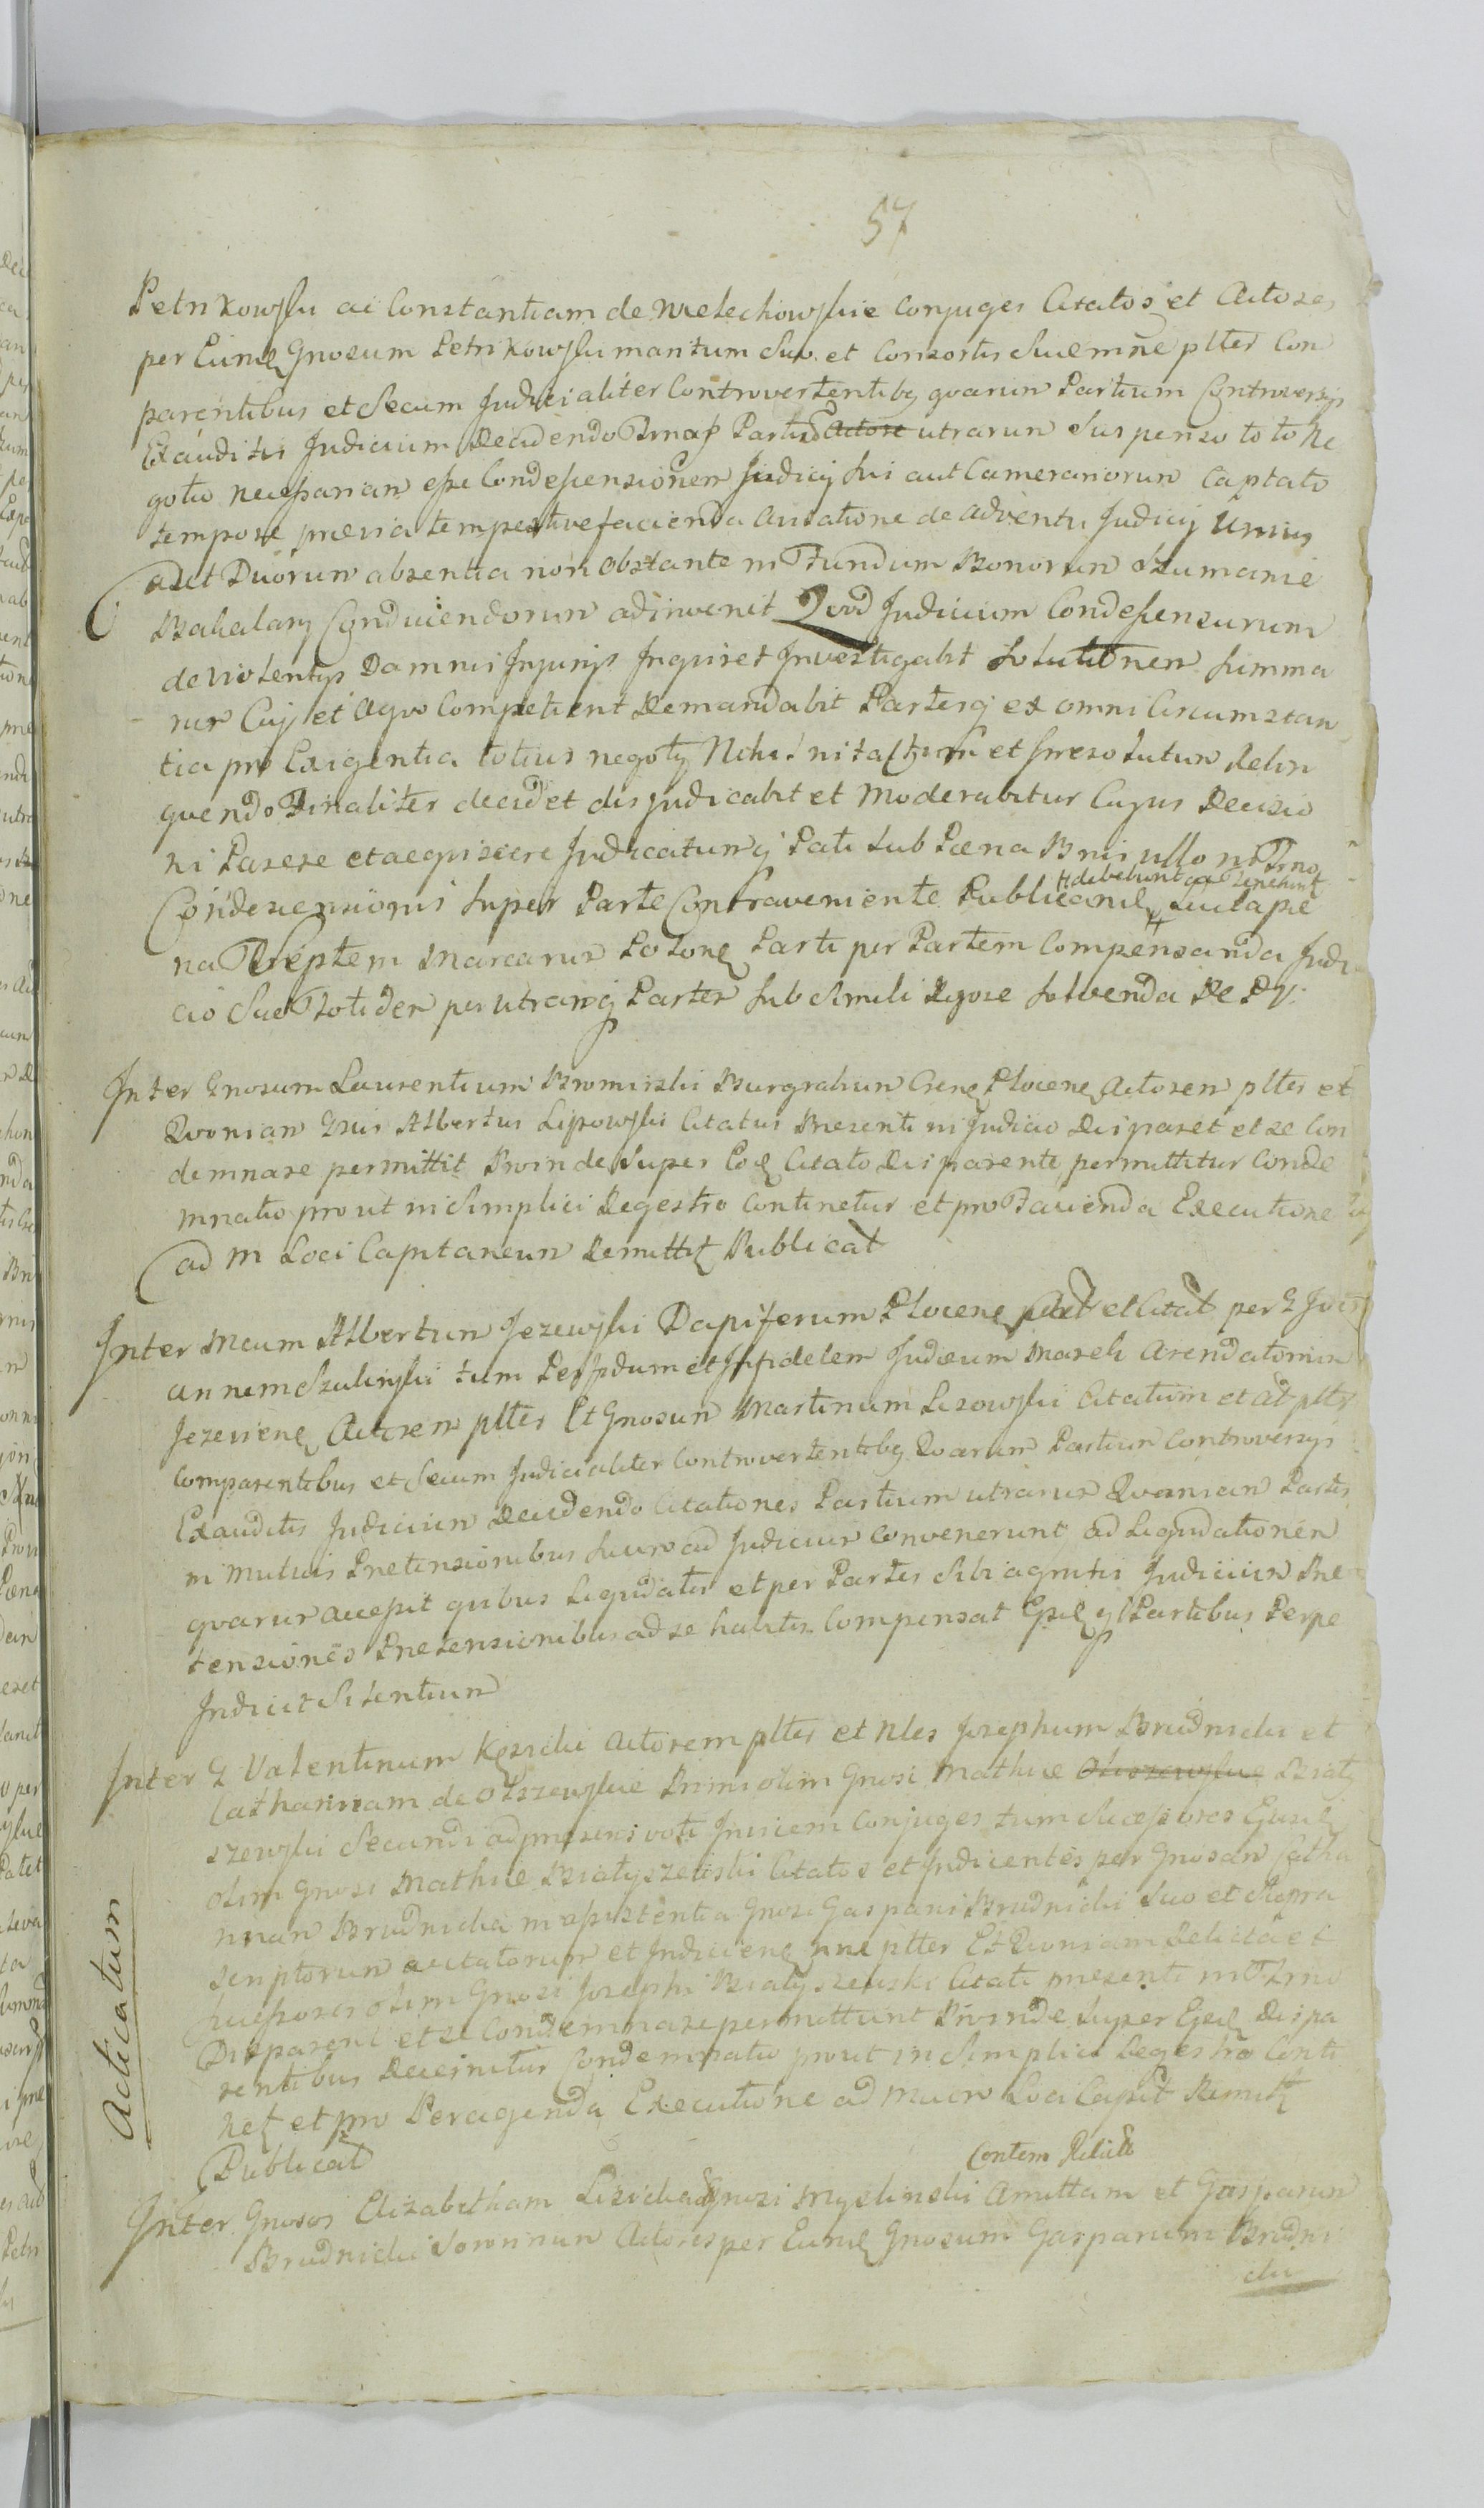 57
Petrikowski ac Constantiam de Mieleckowskie Conjuges Citatos et Actores
per Eund Gnosum Petrikowski maritum Suo et Consortis Suæ mñe plter Com
parentibus et Secum Judicialiter Controvertentibg quarum Partium Controversijs
Exauditis Judicium Decidendo Partium Actore utrarum Suspenso toto Ne
gotio necessariam esse Condescensionem Judicij Sui aut Camerariorum Captato
tempore prævia tempestive facienda Avisatione de adventu Judicij Unius
aut Duorum absentia non Obstante in Fundum Bonorum Szumanie
Bakalary Conducendorum adinvenit Quod Judicium Condescensurum
de violentijs Damnis Injurijs Inquiret Investigabit Solutionem Summa
rum Cuj et a quo Competierit Demandabit Partesq ex omni Circumstan
tia pro Exigentia totius negotij Nihil intactum et Irresolutum Relin
quendo Finaliter decidet dijudicabit et Moderabitur Cujus Decisio
ni Parere et acquiescere Judicatumq Pati Sub Pœna Bnis ullo in Trno
Condescensionis Super Parte Contraveniente Publicand debebunt ac tenebunt Luitapœ
na Septem Marcarum Polon Parti per Partem Compensanda Judi
cio Suo Totidem per utramq Partem Sub Simili Rigore Solvenda De Pz.
Inter Gnosum Laurentium Bromirski Burgrabium Cren Plocen Actorem plter et
Quoniam Gnus Albertus Lipowski Citatus Præsenti in Judicio Disparet et se Con
demnare permittit Proinde Super Eod Citato Disparente permittitur Conde
mnatio prout in Simplici Regestro Continetur et pro Facienda Executione
ad M Loci Capitaneum Remittit Publicat
Inter Mcum Albertum Jezewski Dapiferum Plocen per G Jo
annem Szulinski tum Perfidum et Infidelem Judæum Marek Arendatorem
Jezevien Actorem plter Et Gnosum Martinum Lisowski Citatum et Act plter
Comparentibus et Secum Judicialiter Controvertentibg Quarum Partium Controversijs
Exauditis Judicium Decidendo Citationes Partium utrarum Quoniam Partes
in Mutuis Prætensionibus Suum ad Judicium Convenerunt ad Liquidationem
quarum accepit quibus Liquidatis et per Partes Sibi agnitis Judicium Præ
tensiones Prætensionibus ad se habitis Compensat Partibus Perpe
Indicit Silentium
Inter G Valentinum Kęsicki Actorem plter et Nles Josephum Brudnicki et
Catharinam de Olszewskie Primi olim Gnosi Mathiæ Olszewskie Białÿ
szewski Secundi ad præsens voti Invicem Conjuges tum Successores Ejusd
olim Gnosi Mathiæ Białyszewski Citatos et Indicentes per Gnosam Catha
rinam Brudnicka in assistentia Gnosi Gaspari Brudnicki Suo et Supra
Scriptorum Citatorum et Indicien mñe plter Et Quoniam Relicta et
Successores olim Gnosi Josephi Białyszewski Citati præsenti in Trno
Disparent et se Condemnare permittunt Proinde Super Eisd Dispa
rentibus Decernitur Condemnatio prout in Simplici Regestro Conti
net et pro Peragenda Executione ad Mcum Loci Capit Remitt
Publicat
Acticatum
Contem Relicta
Inter Gnosos Elizabetham Lisicka Gnosi Myslinski Amittam et Gasparum
Brudnicki Sororinum Actores per Eund Gnosum Gasparum Brudni
cki